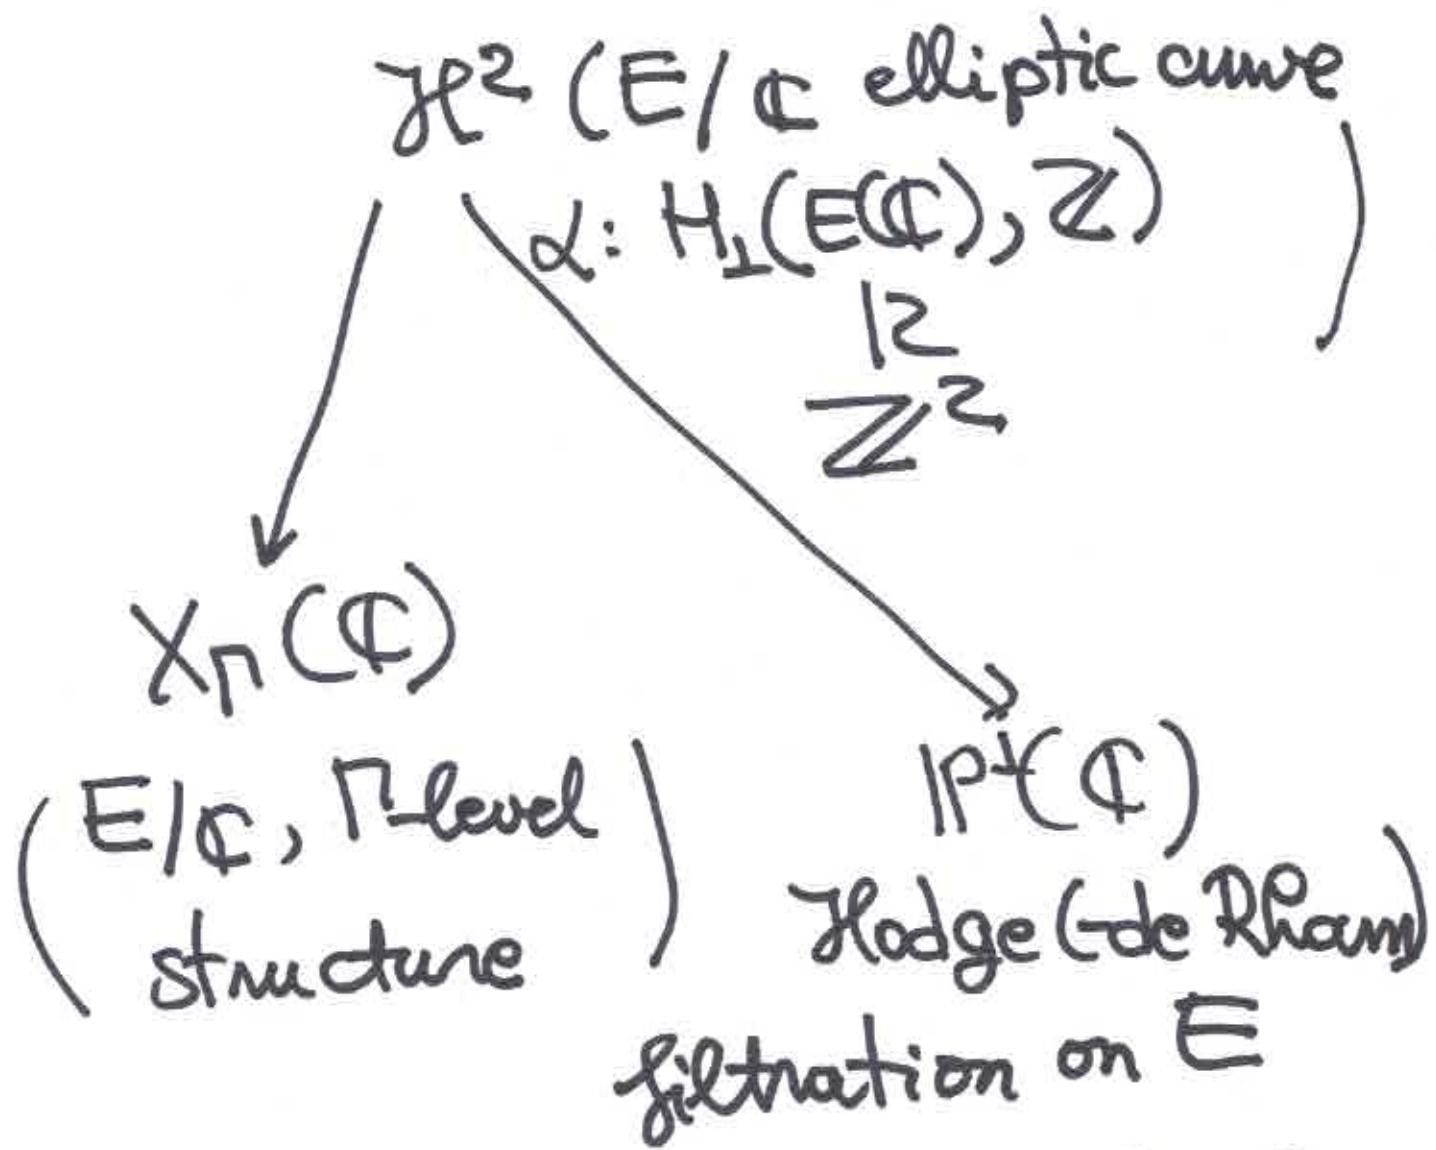 ℋ² (E/ℂ elliptic curve
α: H₁(E(ℂ), ℤ)
≀
ℤ²
)
X_Γ(ℂ)
(E/ℂ, Γ-level
structure)
ℙ¹(ℂ)
Hodge (-de Rham)
filtration on E